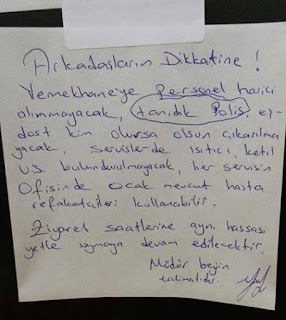 Arkadaşların Dikkatine !
Yemekhaneye personel harici
alınmayacak, tanıdık Polis, eş-
dost kim olursa olsun çıkarılma
yacak, Servislerde ısıtıcı, ketıl
v.s. bulundurulmayacak, her servisin
Ofisinde ocak mevcut hasta
refakatçileri kullanabilir.
Ziyaret saatlerine aynı hassasi
yetle uymaya devam edilecektir.
Müdür beyin
talimatıdır.